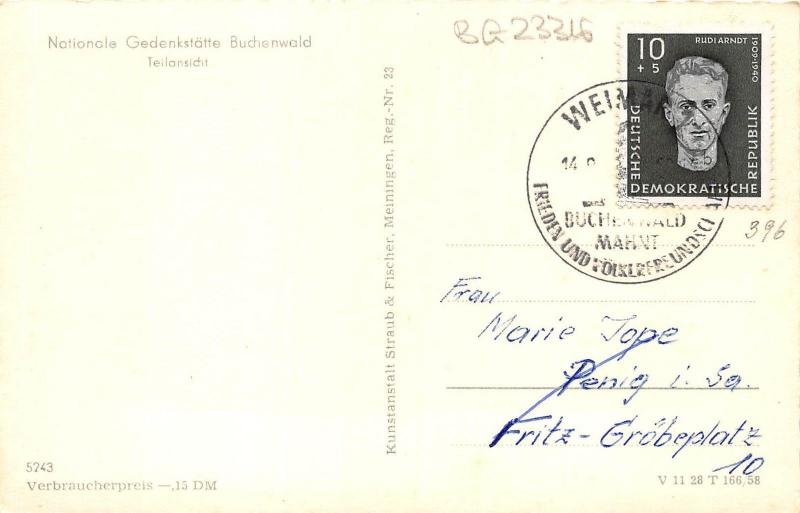 BG 23316
Nationale Gedenkstätte Buchenwald
Teilansicht
10
+ 5
RUDI ARNDT
1909-1940
DEUTSCHE
DEMOKRATISCHE
REPUBLIK
WEIMAR
14.
BUCHENWALD
MAHNT
FRIEDEN UND VÖLKERFREUNDSCHA
396
Kunstanstalt Straub & Fischer, Meiningen, Reg.-Nr. 23
Frau
Marie Tope
Penig i. Sa.
Fritz-Gröbeplatz
10
5243
Verbraucherpreis —,15 DM
V 11 28 T 166/58